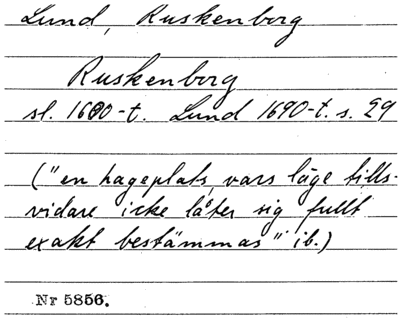 Lund, Ruskenborg
Ruskenborg
sl. 1600-t. Lund 1690-t. s. 29
("en hageplats, vars läge tills-
vidare icke låter sig fullt
exakt bestämmas" ib.)
Nr 5856.